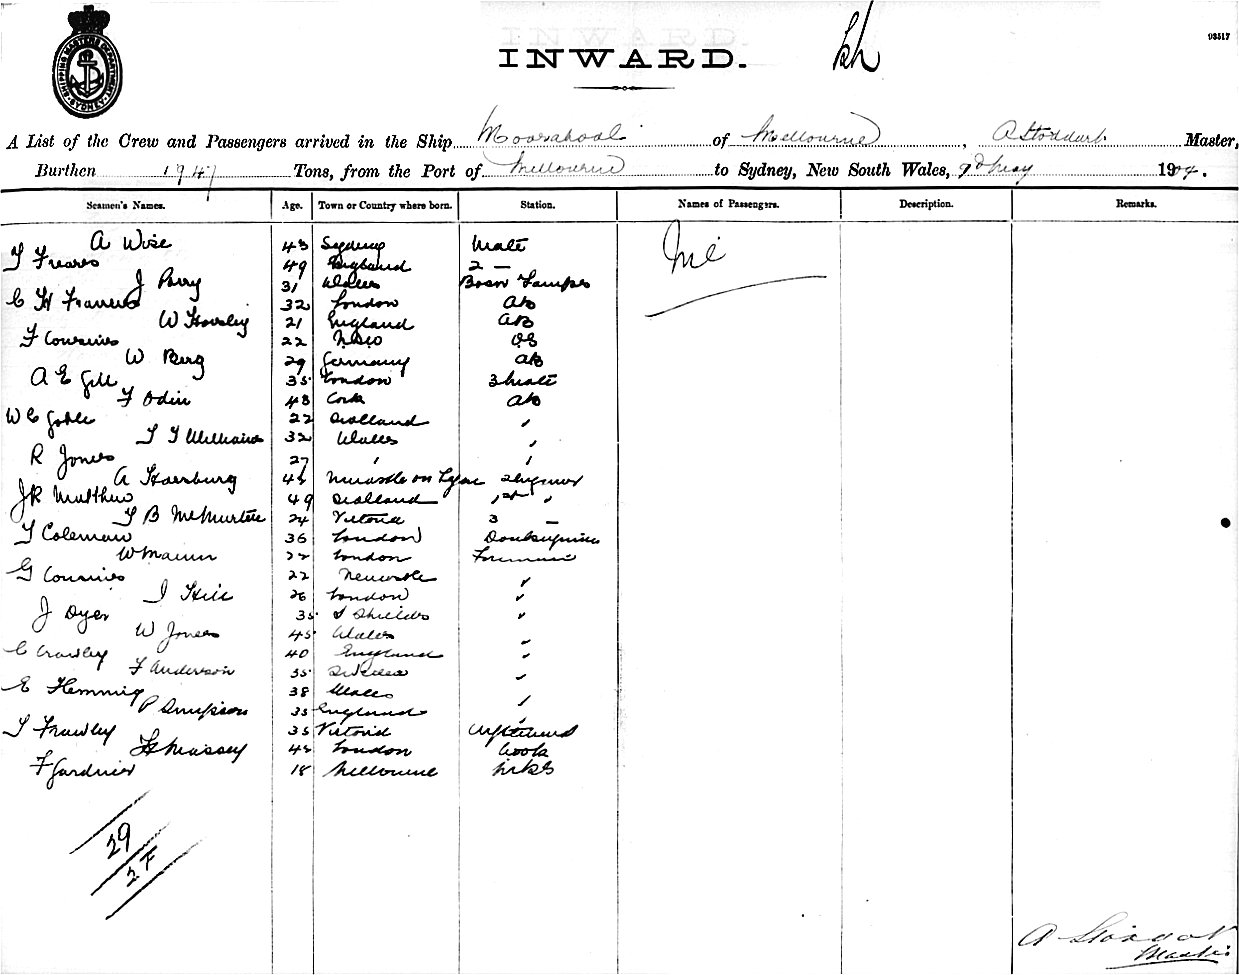 SHIPPING MASTERS DEPARTMENT SYDNEY
93517
INWARD.
A List of the Crew and Passengers arrived in the Ship Moorabool of Melbourne, A Stoddart Master,
Burthen 1947 Tons, from the Port of Melbourne to Sydney, New South Wales, 9d May 1904.
Seamen's Names. Age. Town or Country where born. Station. Names of Passengers. Description. Remarks.
A Wise 43 Sydney Mate Nil
T Freares 49 England 2 —
J Parry 31 Wales Bosn Lamps
C H Frances 32 London AB
W Horsley 21 England AB
F Cousins 22 NSW OS
W Berg 29 Germany AB
A E Gill 35 London 3 Mate
F Odin 48 Cork AB
W C Goble 22 Scotland "
T J Williams 32 Wales "
R Jones 27 " "
A Harburg 45 Newcastle on Tyne
J R Matthew 49 Scotland
T B McMurtrie 24 Victoria 3 —
T Coleman 36 London
W Mann 22 London Firemen
G Cousins 22 Newcastle "
J Hill 26 London "
J Dyer 35 S Shields "
W Jones 45 Wales "
C Crawley 40 England "
F Anderson 35 Sweden "
E Flemming 38 Wales "
P Simpson 35 England "
T Frawley 35 Victoria
H Massey 42 London Cook
F Gardner 18 Melbourne
29
2 F
A Stoddart
Master